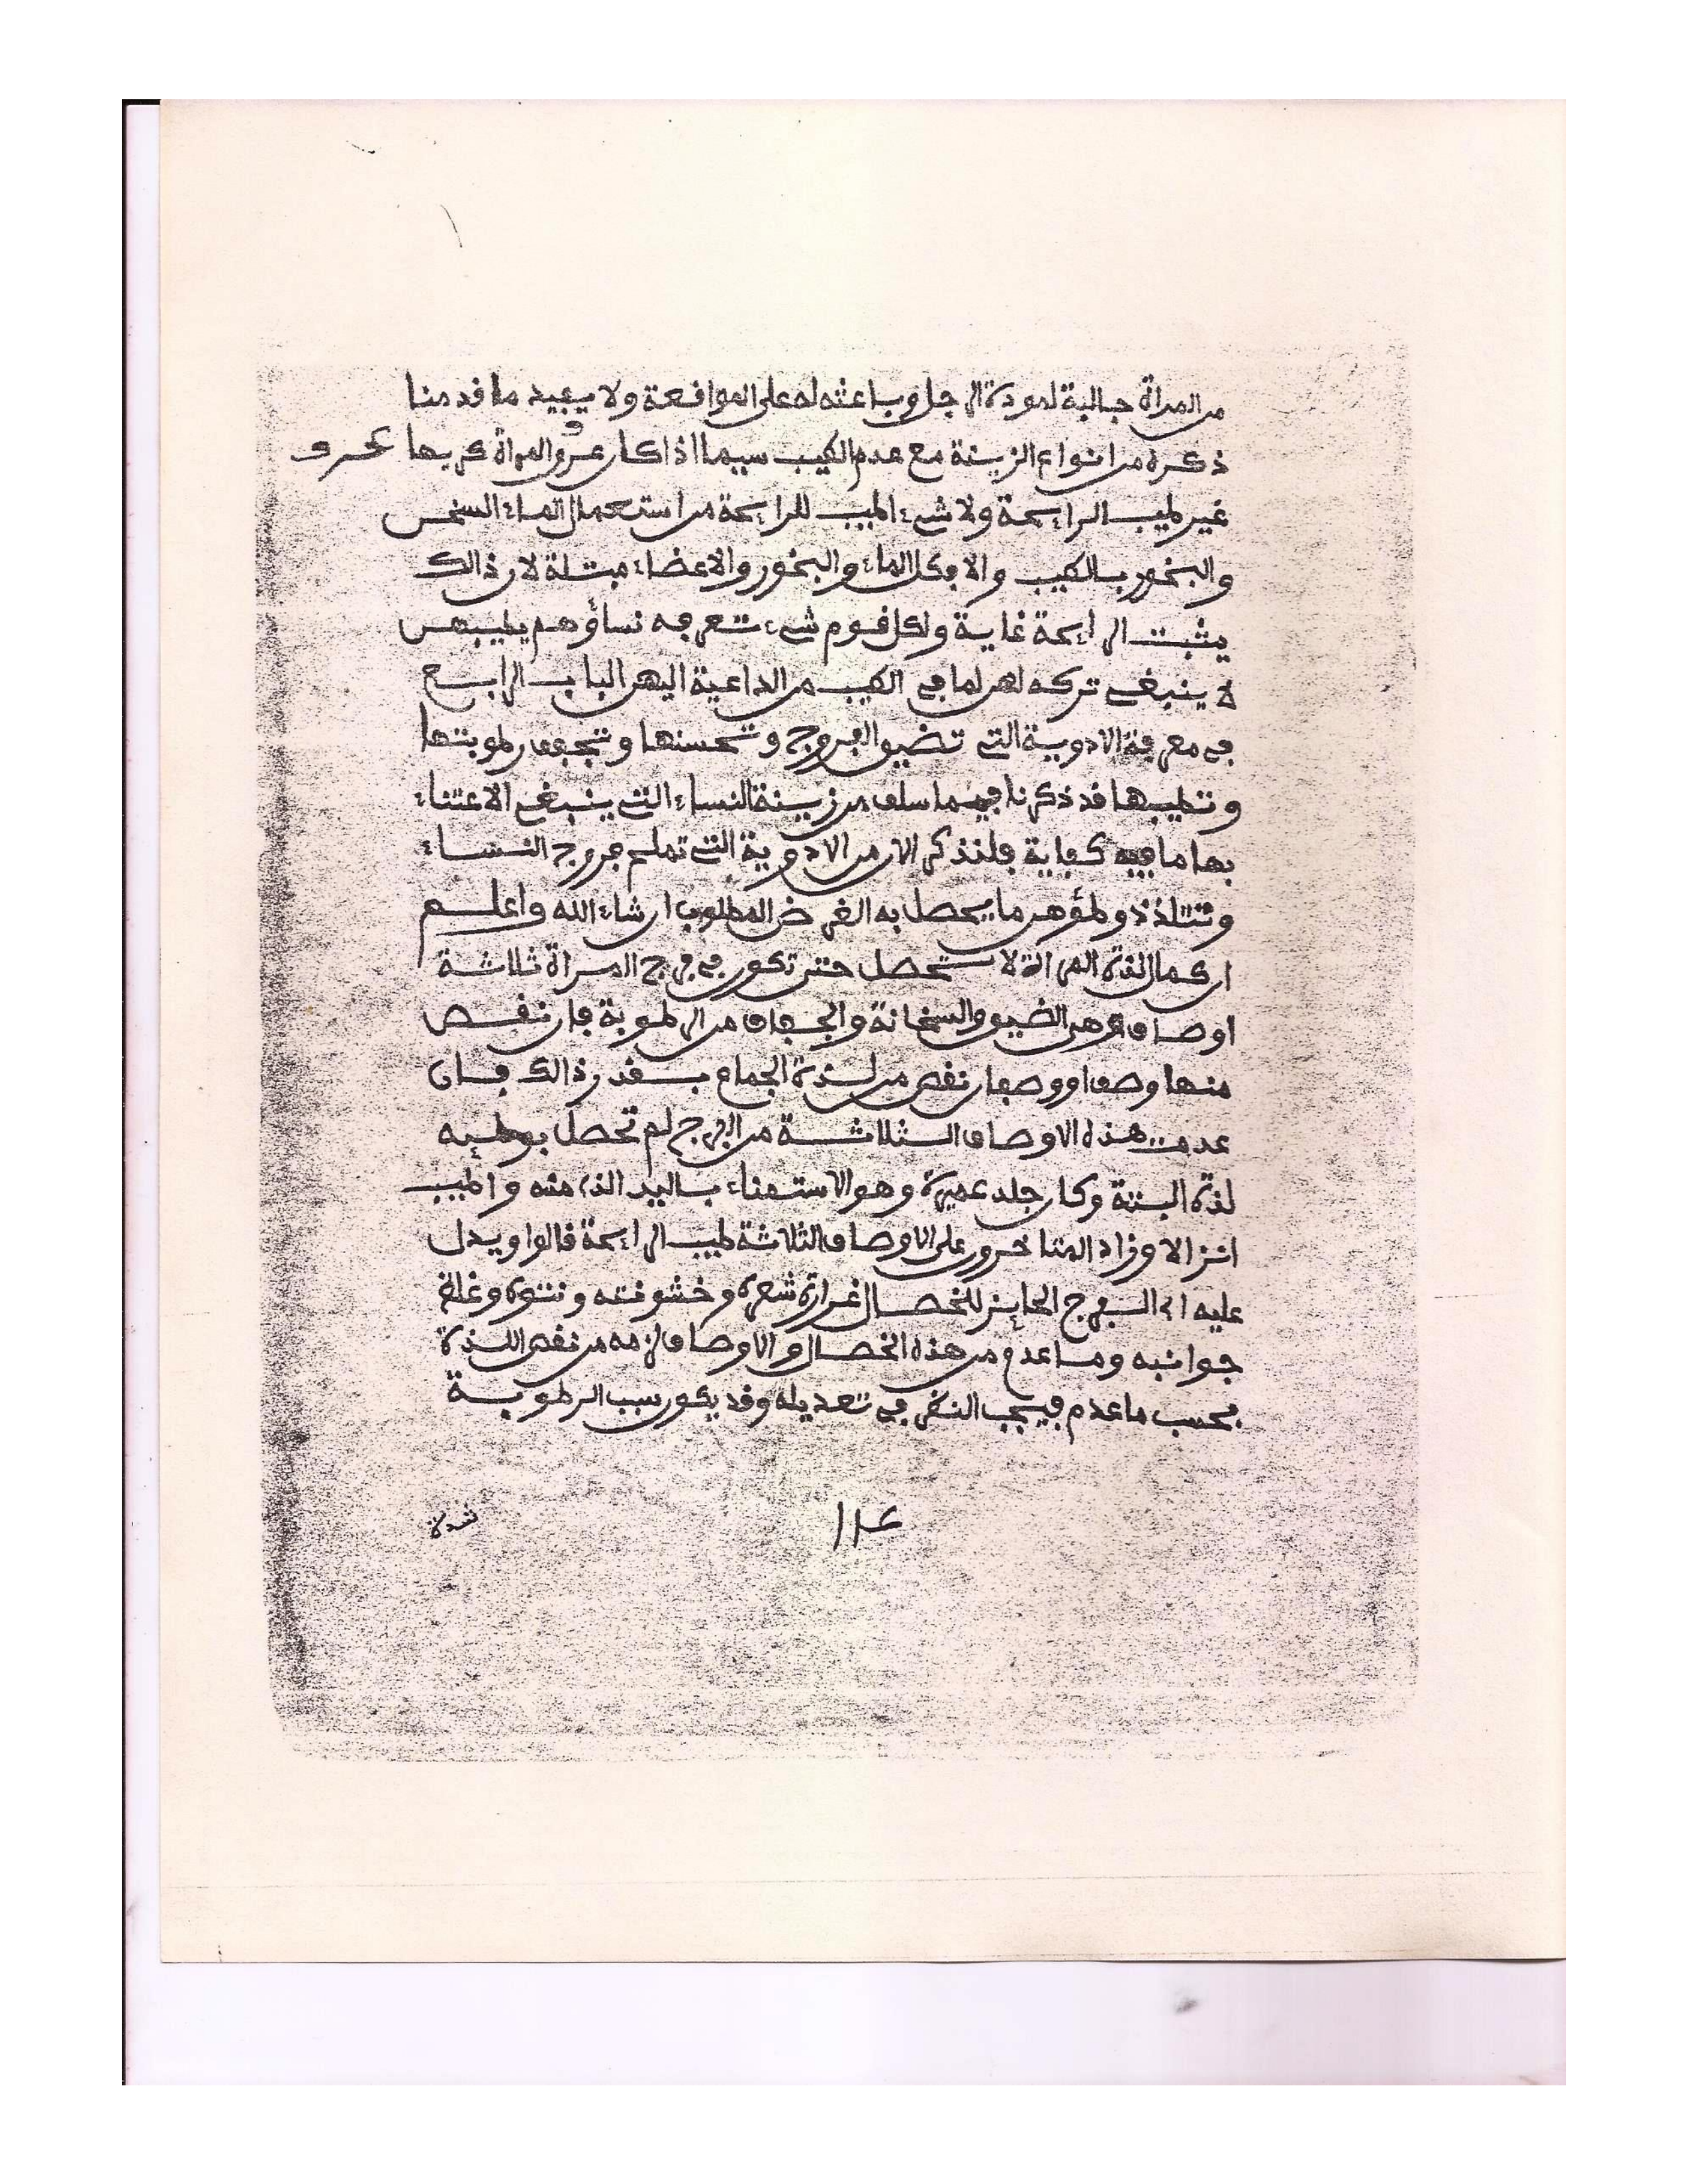 من المرأة جالبة لمودة الرجل وباعثه له على المواقعة ولا يفيد ما قدمنا
ذكره من انواع الزينة مع عدم الطيب سيما اذا كان عروق المرأة كريها عرق
غير طيب الرايحة ولا شيء اطيب للرايحة من استعمال الماء السخن
والبخور بالطيب والا فكل الماء والبخور والاعضاء مبتلة لان ذالك
يثبت الرايحة غاية ولكل قوم شيء تعرفه نساؤهم يطيبهن
لا ينبغي تركه لهن لما في الطيب من الداعية اليهن الباب الرابع
في معرفة الادوية التي تضيق الفروج وتحسنها وتجفف رطوبتها
وتطيبها قد ذكرنا فيما سلف من زينة النساء التي ينبغي الاعتناء
بها ما فيه كفاية فلنذكر الان من الادوية التي تملح فروج النساء
وتتلذذ وطؤهن ما يحصل به الغرض المطلوب ان شاء الله واعلم
ان كمال لذة المراة لا تحصل حتى تكون في فرج المراة ثلاثة
اوصاف وهي الضيق والسخانة والجفاف من الرطوبة فان نقص
منها وصف او وصفان نقص من لذة الجماع بقدر ذالك فان
عدمت هذه الاوصاف الثلاثة من الفرج لم تحصل بوطيه
لذة البتة وكان جلد عميرة وهو الاستمناء باليد الذ منه واطيب
انزالا وزاد المتاخرون على الاوصاف الثلاثة طيب الرايحة قالوا ويدل
عليه اي الفرج الحايز للخصال غزارة شعره وخشونته ونتوه وغلظ
جوانبه وما عدم من هذه الخصال والاوصاف لزمه من نقص اللذة
بحسب ما عدم فيجب النظر في تعديله وقد يكون سبب الرطوبة
شدة